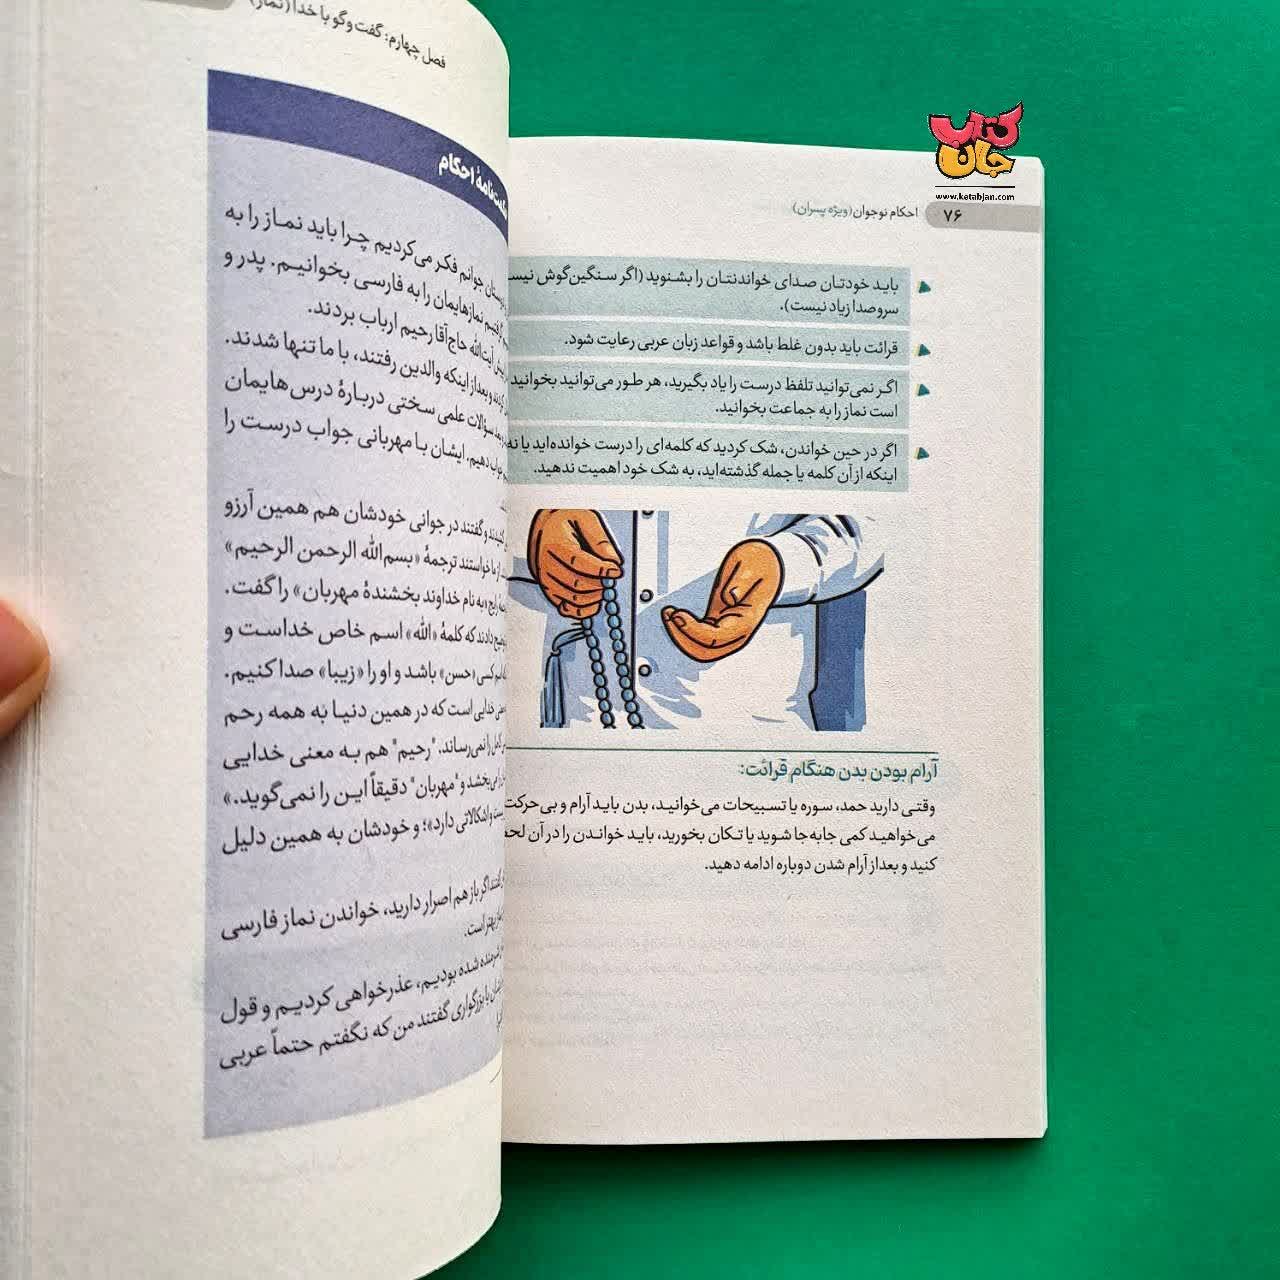 کتاب جان
www.ketabjan.com
۷۶
احکام نوجوان (ویژه پسران)
باید خودتان صدای خواندنتان را بشنوید (اگر سنگین‌گوش
سروصدا زیاد نیست).
قرائت باید بدون غلط باشد و قواعد زبان عربی رعایت شود.
اگر نمی‌توانید تلفظ درست را یاد بگیرید، هر طور می‌توانید بخوانید
است نماز را به جماعت بخوانید.
اگر در حین خواندن، شک کردید که کلمه‌ای را درست خوانده‌اید یا
اینکه از آن کلمه یا جمله گذشته‌اید، به شک خود اهمیت ندهید.
آرام بودن بدن هنگام قرائت:
وقتی دارید حمد، سوره یا تسبیحات می‌خوانید، بدن باید آرام و بی‌حرکت
می‌خواهید کمی جابه‌جا شوید یا تکان بخورید، باید خواندن را در آن
کنید و بعد از آرام شدن دوباره ادامه دهید.
فصل چهارم: گفت‌وگو با خدا (نماز)
احکام
جوانم فکر می‌کردیم چرا باید نماز را به
نمازهایمان را به فارسی بخوانیم. پدر و
آیت‌الله حاج‌آقا رحیم ارباب بردند.
و بعد از اینکه والدین رفتند، با ما تنها شدند.
سؤالات علمی سختی دربارهٔ درس‌هایمان
دهیم. ایشان با مهربانی جواب درست را
و گفتند در جوانی خودشان هم همین آرزو
خواستند ترجمهٔ «بسم‌الله الرحمن الرحیم»
رایج «به نام خداوند بخشندهٔ مهربان» را گفت.
دادند که کلمهٔ «الله» اسم خاص خداست و
کسی «حسن» باشد و او را «زیبا» صدا کنیم.
خدایی است که در همین دنیا به همه رحم
را نمی‌رساند. "رحیم" هم به معنی خدایی
می‌بخشد و "مهربان" دقیقاً این را نمی‌گوید.»
و اشکالاتی دارد»؛ و خودشان به همین دلیل
اگر باز هم اصرار دارید، خواندن نماز فارسی
بهتر است.
شرمنده شده بودیم، عذرخواهی کردیم و قول
با بزرگواری گفتند من که نگفتم حتماً عربی